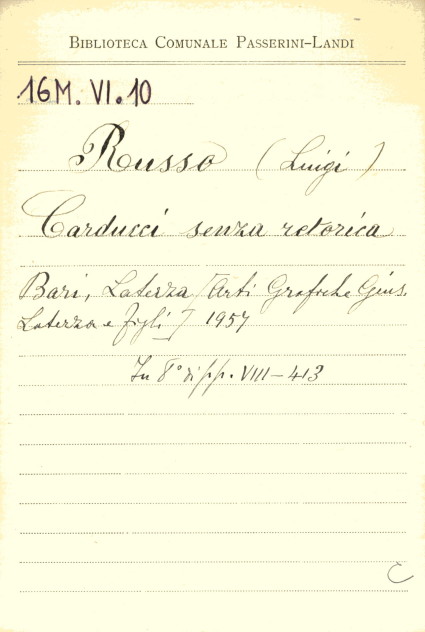 BIBLIOTECA COMUNALE PASSERINI-LANDI
16M. VI. 10
Russo (Luigi)
Carducci senza retorica
Bari, Laterza [Arti Grafiche Gius.
Laterza e Figli] 1957
In 8° di pp. VIII-413
C